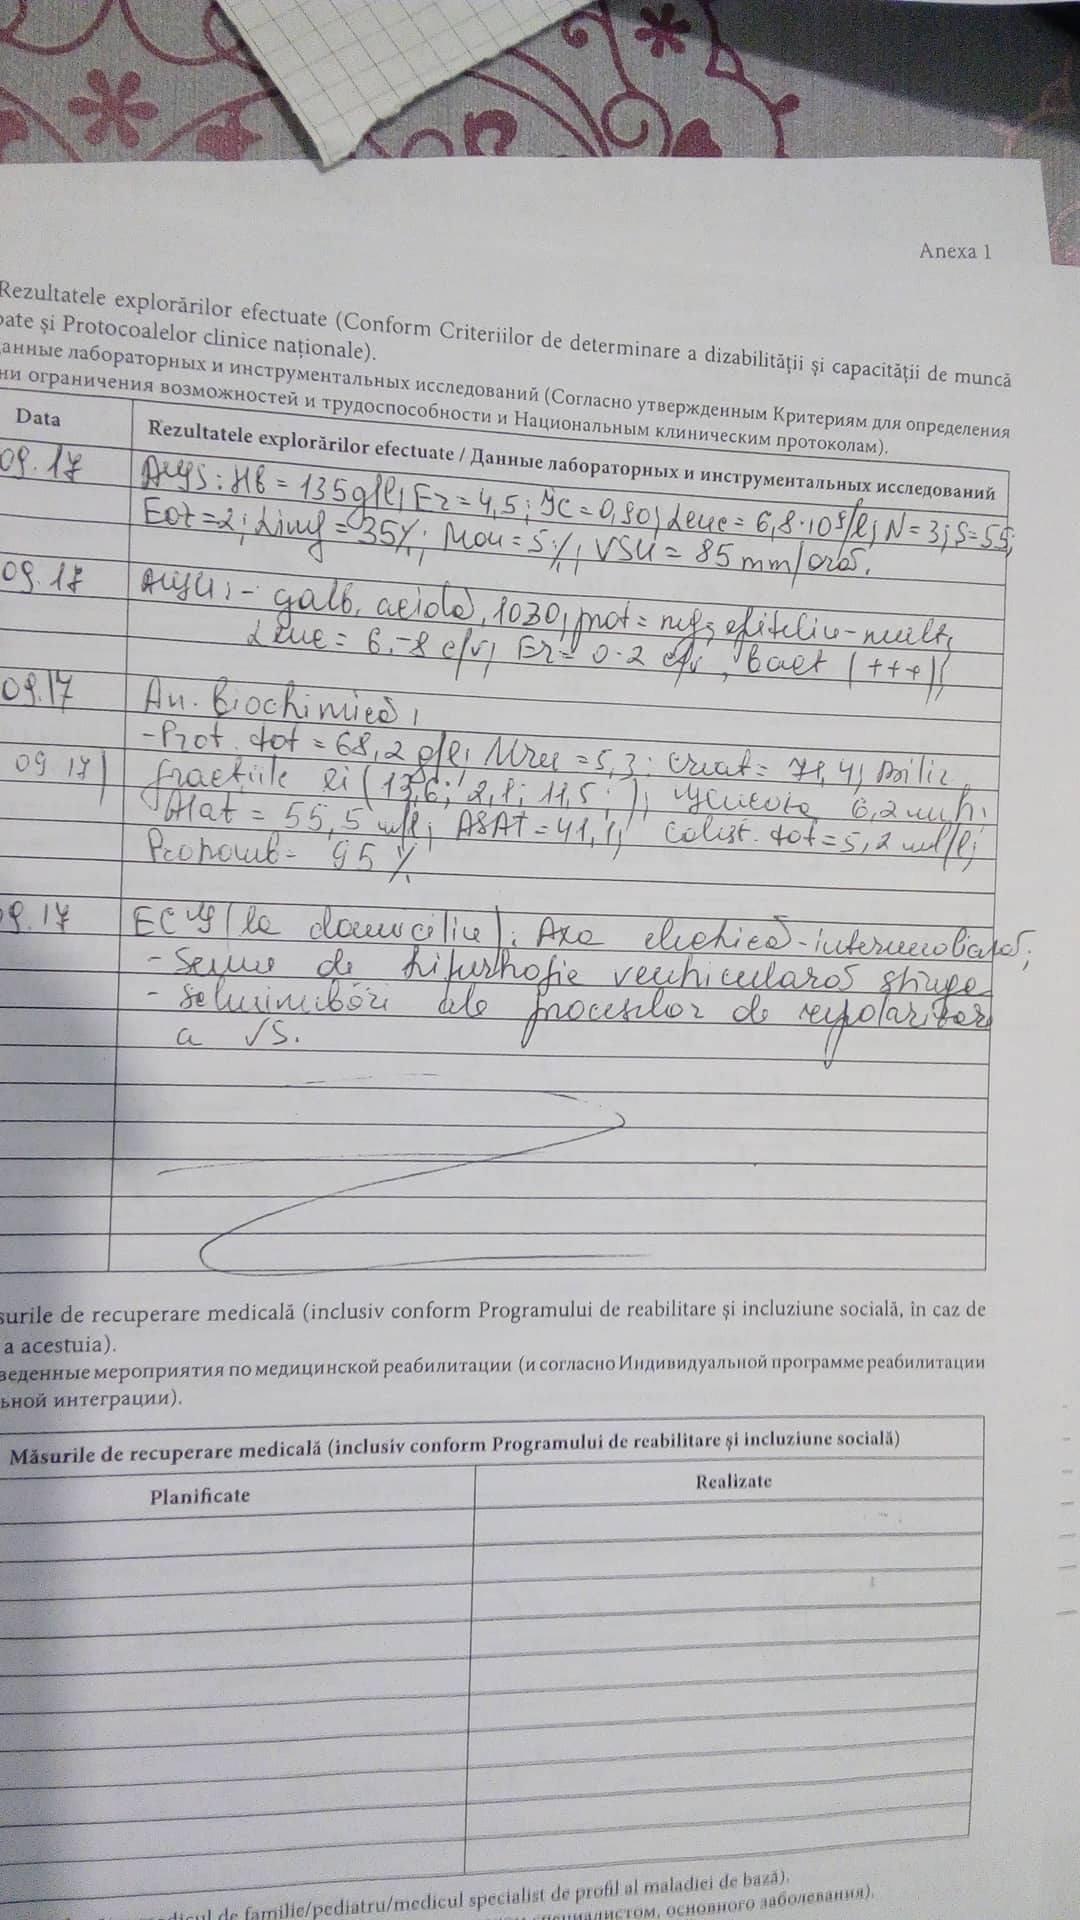 Anexa 1
Rezultatele explorărilor efectuate (Conform Criteriilor de determinare a dizabilității și capacității de muncă
oate și Protocoalelor clinice naționale).
анные лабораторных и инструментальных исследований (Согласно утвержденным Критериям для определения
ни ограничения возможностей и трудоспособности и Национальным клиническим протоколам).
Data
Rezultatele explorărilor efectuate / Данные лабораторных и инструментальных исследований
09.17
AGS: Hb = 135 g/l; Er = 4,5; IC = 0,90; Leuc = 6,8·10⁹/l; N = 3; S = 55;
Eoz = 2; Limf = 35%; Mon = 5%; VSH = 85 mm/oră.
09.17
AGU: - galb, acidă, 1030, prot = neg, epiteliu - mult,
Leuc = 6-8 c/v, Er = 0-2 c/v, bact (+++),
09.17
An. biochimică:
- Prot. tot = 68,2 g/l; Uree = 5,3; Creat = 71,4; Bilir.
09.17
fracțiile ei (13,6; 2,1; 11,5;); Glucoza 6,2
Alat = 55,5 u/l; ASAT = 41,1; Colest. tot = 5,2
Protromb - 95%
09.17
ECG (la domiciliu): Axa electrică - intermediară;
- Semne de hipertrofie ventriculară stînga
- Schimbări ale proceselor de repolarizare
a VS.
surile de recuperare medicală (inclusiv conform Programului de reabilitare și incluziune socială, în caz de
a acestuia).
веденные мероприятия по медицинской реабилитации (и согласно Индивидуальной программе реабилитации
ьной интеграции).
Măsurile de recuperare medicală (inclusiv conform Programului de reabilitare și incluziune socială)
Planificate
Realizate
dicul de familie/pediatru/medicul specialist de profil al maladiei de bază).
специалистом, основного заболевания).